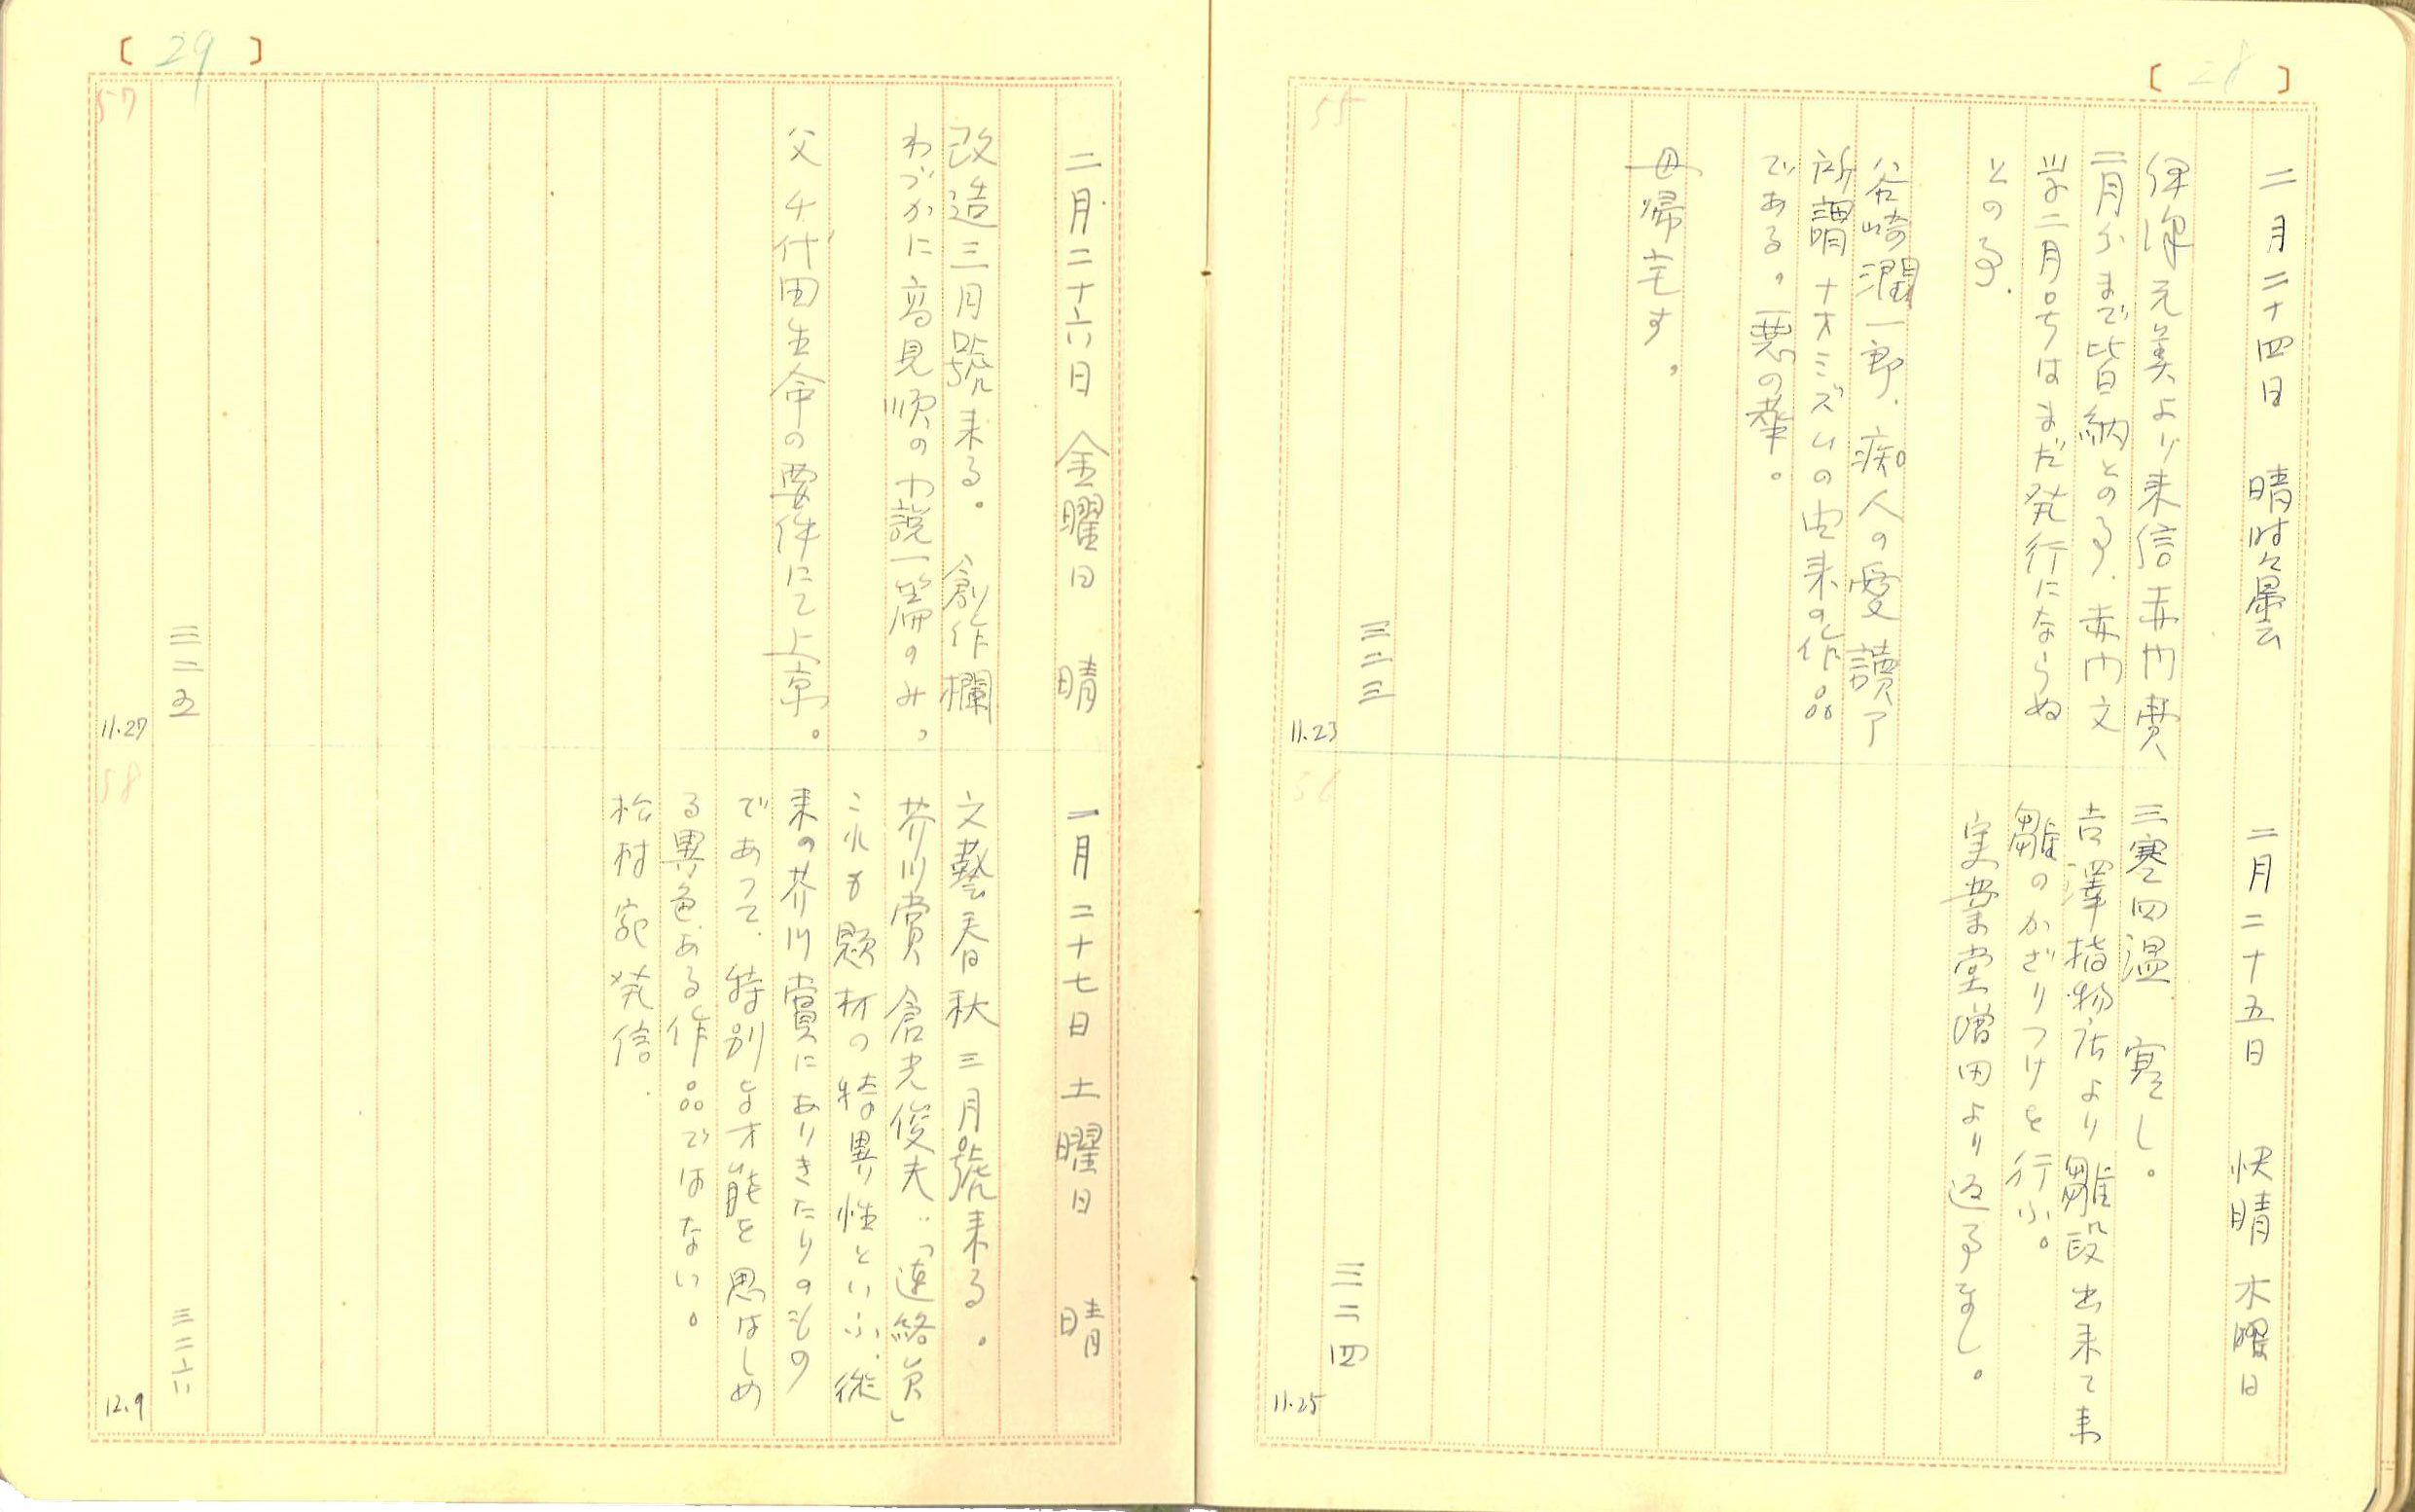 [ 28 ]
55
二月二十四日 晴時々曇
伊澤元美より来信赤門費
二月分まで皆納との事.赤門文
学二月号はまだ発行にならぬ
との事.
谷崎潤一郎.痴人の愛讀了
所謂ナオミズムの由来の作品
である。悪の華。
母帰宅す。
三二三
11.23
56
二月二十五日 快晴 木曜日
三寒四温 寒し。
吉澤指物店より雛段出来て来
雛のかざりつけを行ふ。
実業堂増田より返事なし。
三二四
11.25
[ 29 ]
57
二月二十六日 金曜日 晴
改造三月號来る。 創作欄
わづかに高見順の小説一篇のみ。
父 千代田生命の要件にて上京。
三二五
11.27
58
二月二十七日 土曜日 晴
文藝春秋三月號来る。
芥川賞 倉光俊夫:「連絡員」
これも題材の特異性といふ、従
来の芥川賞にありきたりのもの
であつて.特別な才能を思はしめ
る異色ある作品ではない。
松村宛発信.
三二六
12.9